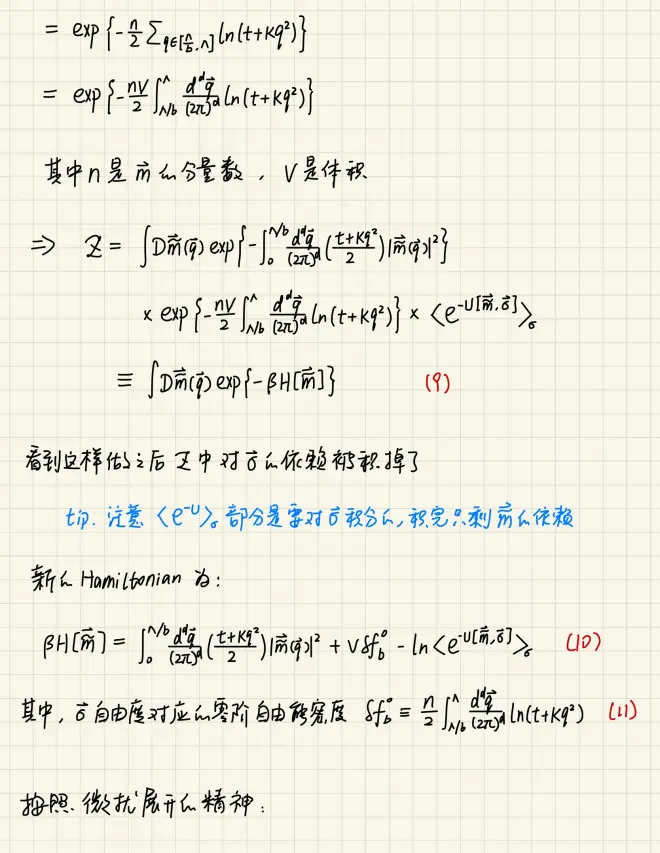 = exp{-n/2 Σ_{q∈[Λ/b,Λ]} ln(t+Kq²)}
= exp{-nV/2 ∫_{Λ/b}^{Λ} d^d q⃗/(2π)^d ln(t+Kq²)}
其中n是m⃗的分量数，V是体积
⇒ Z = ∫Dm⃗(q⃗) exp{-∫_0^{Λ/b} d^d q⃗/(2π)^d ((t+Kq²)/2)|m⃗(q⃗)|²}
× exp{-nV/2 ∫_{Λ/b}^{Λ} d^d q⃗/(2π)^d ln(t+Kq²)} × <e^{-U[m⃗,σ⃗]}>_σ
≡ ∫Dm⃗(q⃗) exp{-βH[m⃗]} (9)
看到这样做之后 Z中对σ⃗的依赖被积掉了
tip. 注意 <e^{-U}>_σ 部分是要对σ⃗积分的,积完只剩m⃗的依赖
新的Hamiltonian为:
βH[m⃗] = ∫_0^{Λ/b} d^d q⃗/(2π)^d ((t+Kq²)/2)|m⃗(q⃗)|² + Vδf_b^0 - ln<e^{-U[m⃗,σ⃗]}>_σ (10)
其中，σ⃗自由度对应的零阶自由能密度 δf_b^0 ≡ n/2 ∫_{Λ/b}^{Λ} d^d q⃗/(2π)^d ln(t+Kq²) (11)
按照微扰展开的精神: